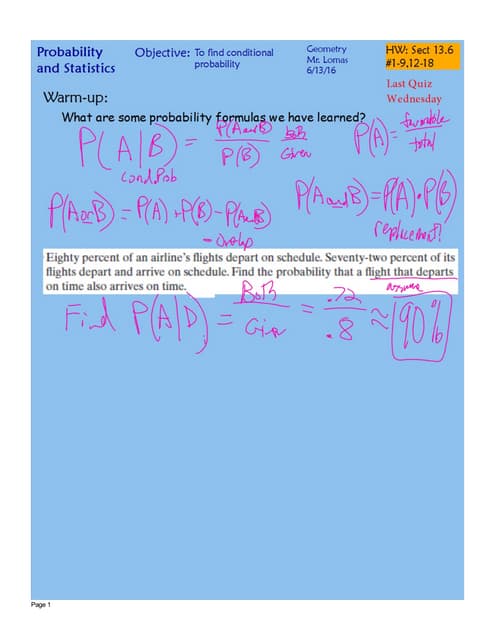 Probability
and Statistics
Objective: To find conditional
probability
Geometry
Mr. Lomas
6/13/16
HW: Sect 13.6
#1-9,12-18
Last Quiz
Wednesday
Warm-up:
What are some probability formulas we have learned?
P(A|B) = P(A and B) / P(B) Both / Given
Cond. Prob
P(A) = favorable / total
P(A or B) = P(A) + P(B) - P(A and B)
- Overlap
P(A and B) = P(A) · P(B)
replacement?
Eighty percent of an airline's flights depart on schedule. Seventy-two percent of its
flights depart and arrive on schedule. Find the probability that a flight that departs
on time also arrives on time.
Find P(A|D) = Both / Giv = .72 / .8 ≈ 90%
Page 1